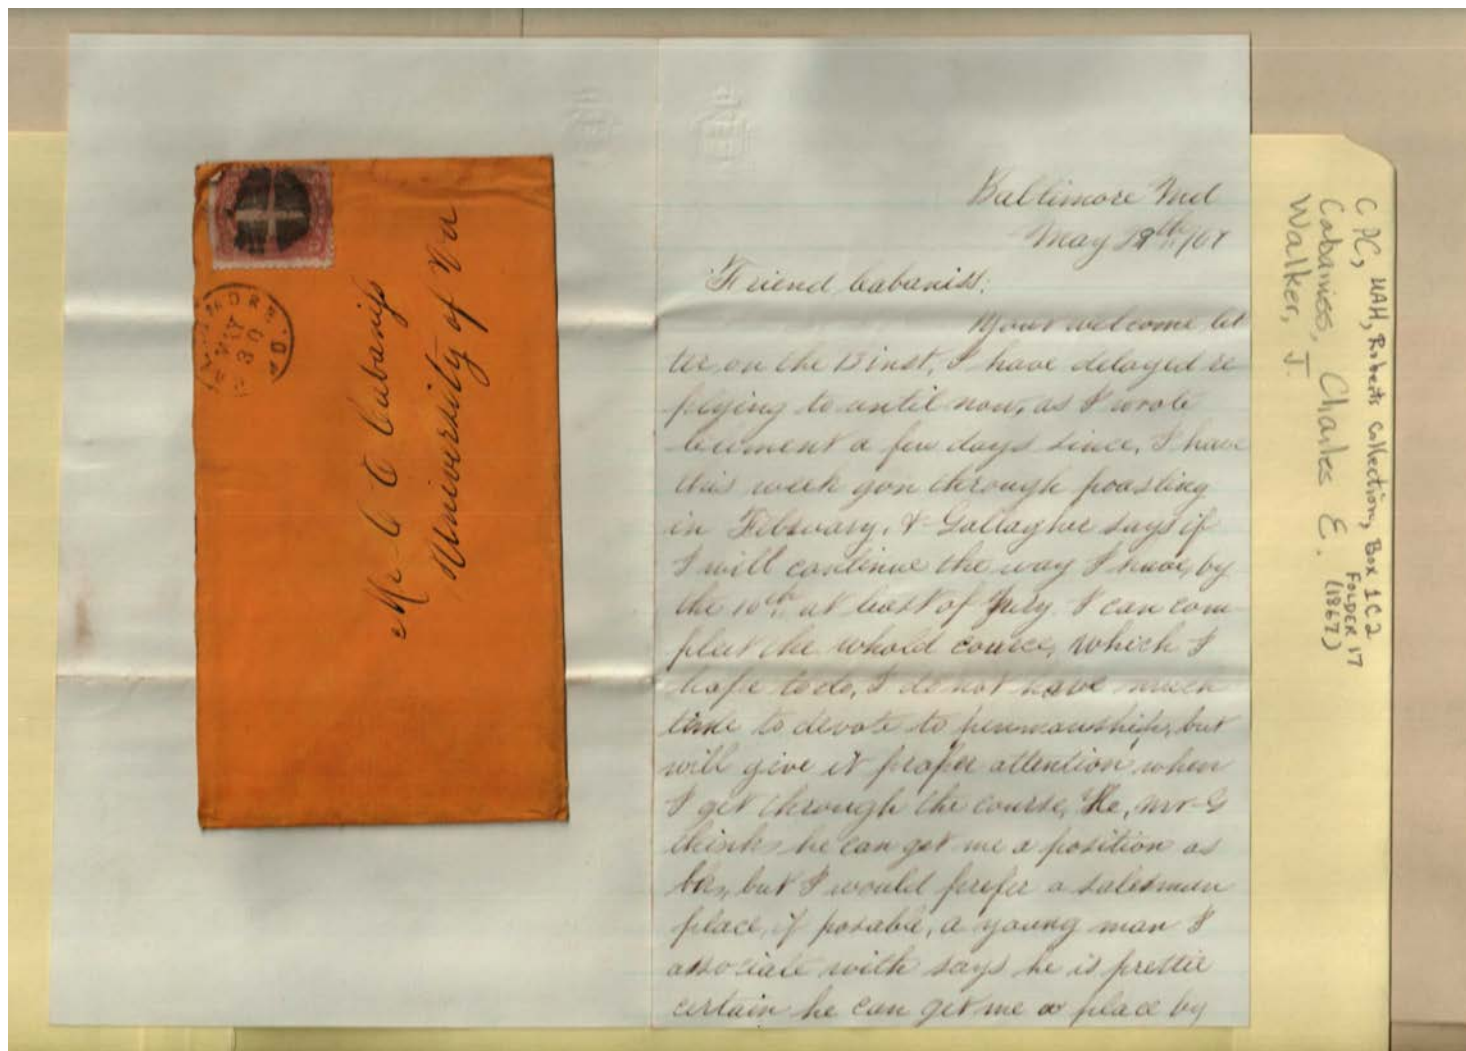 Mr C E Cabaniss
University of Va
BALTIMORE MD.
MAY
Baltimore Md
May 19th /67
Friend Cabaniss:
Your welcome let
ter on the 13 inst, I have delayed re
plying to until now, as I wrote
a few days since, I have
this week gon through poasting
in February, & Gallagher says if
I will continue the way I have, by
the 10th at least of July I can com
pleet the whold cource, which I
hope to do, I do not have much
time to devote to penmanship, but
will give it proper attention when
I get through the course, He, Mr G
thinks he can get me a position as
but I would prefer a salesman
place, if posable, a young man I
associate with says he is prettie
certain he can get me a place by
CPC, UAH, Roberts Collection, Box 1C2
FOLDER 17
(1867)
Cabaniss, Charles E.
Walker, J.